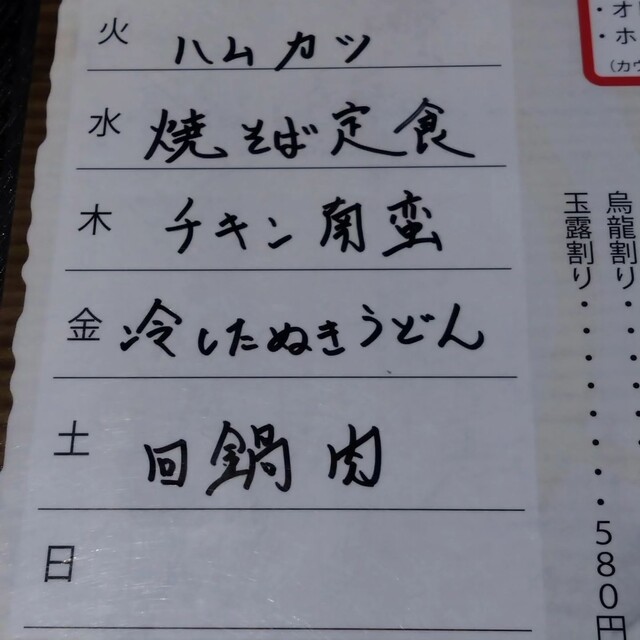 火 ハムカツ
水 焼そば定食
木 チキン南蛮
金 冷したぬきうどん
土 回鍋肉
日
・ホ
(カウ
烏龍割り・・・・・・
玉露割り・・・・・・・・580円